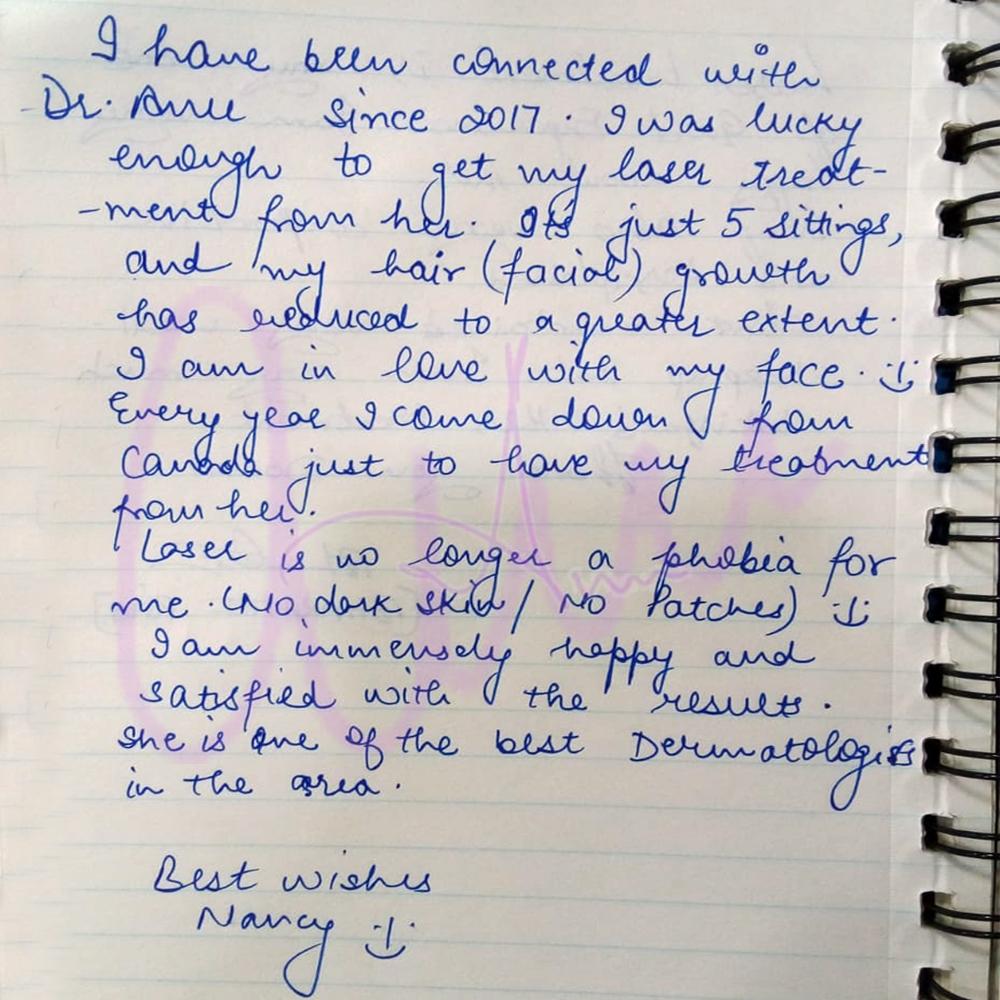 I have been connected with
Dr. Anu since 2017. I was lucky
enough to get my laser treat-
-ment from her. Its just 5 sittings,
and my hair (facial) growth
has reduced to a greater extent.
I am in love with my face. :)
Every year I come down from
Canada just to have my treatment
from her.
Laser is no longer a phobia for
me. (No dark skin / No Patches) :)
I am immensely happy and
satisfied with the results.
She is one of the best Dermatologists
in the area.
Best wishes
Nancy :)